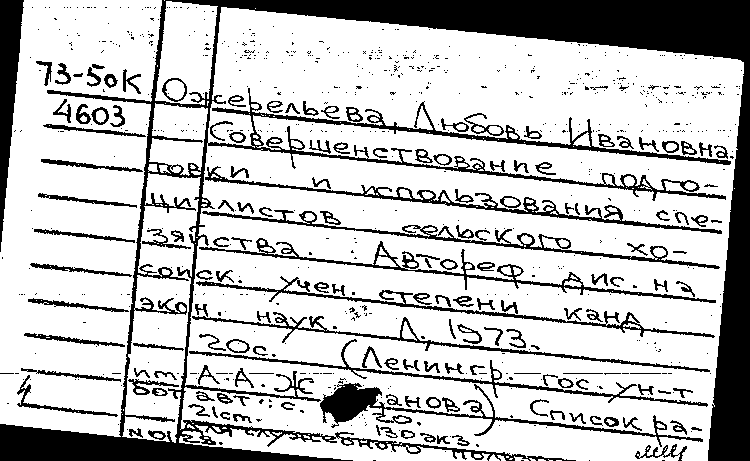 73-5ок
4603
Ожерельева, Любовь Ивановна.
Совершенствование подго-
товки и использования спе-
циалистов сельского хо-
зяйства. Автореф. дис. на
соиск. учен. степени канд
экон. наук. Л., 1973.
20с. (Ленингр. гос. ун-т
им. А.А. Жданова). Список ра-
бот авт.: с. 20.
21ст. 130 экз.
Для служебного
4